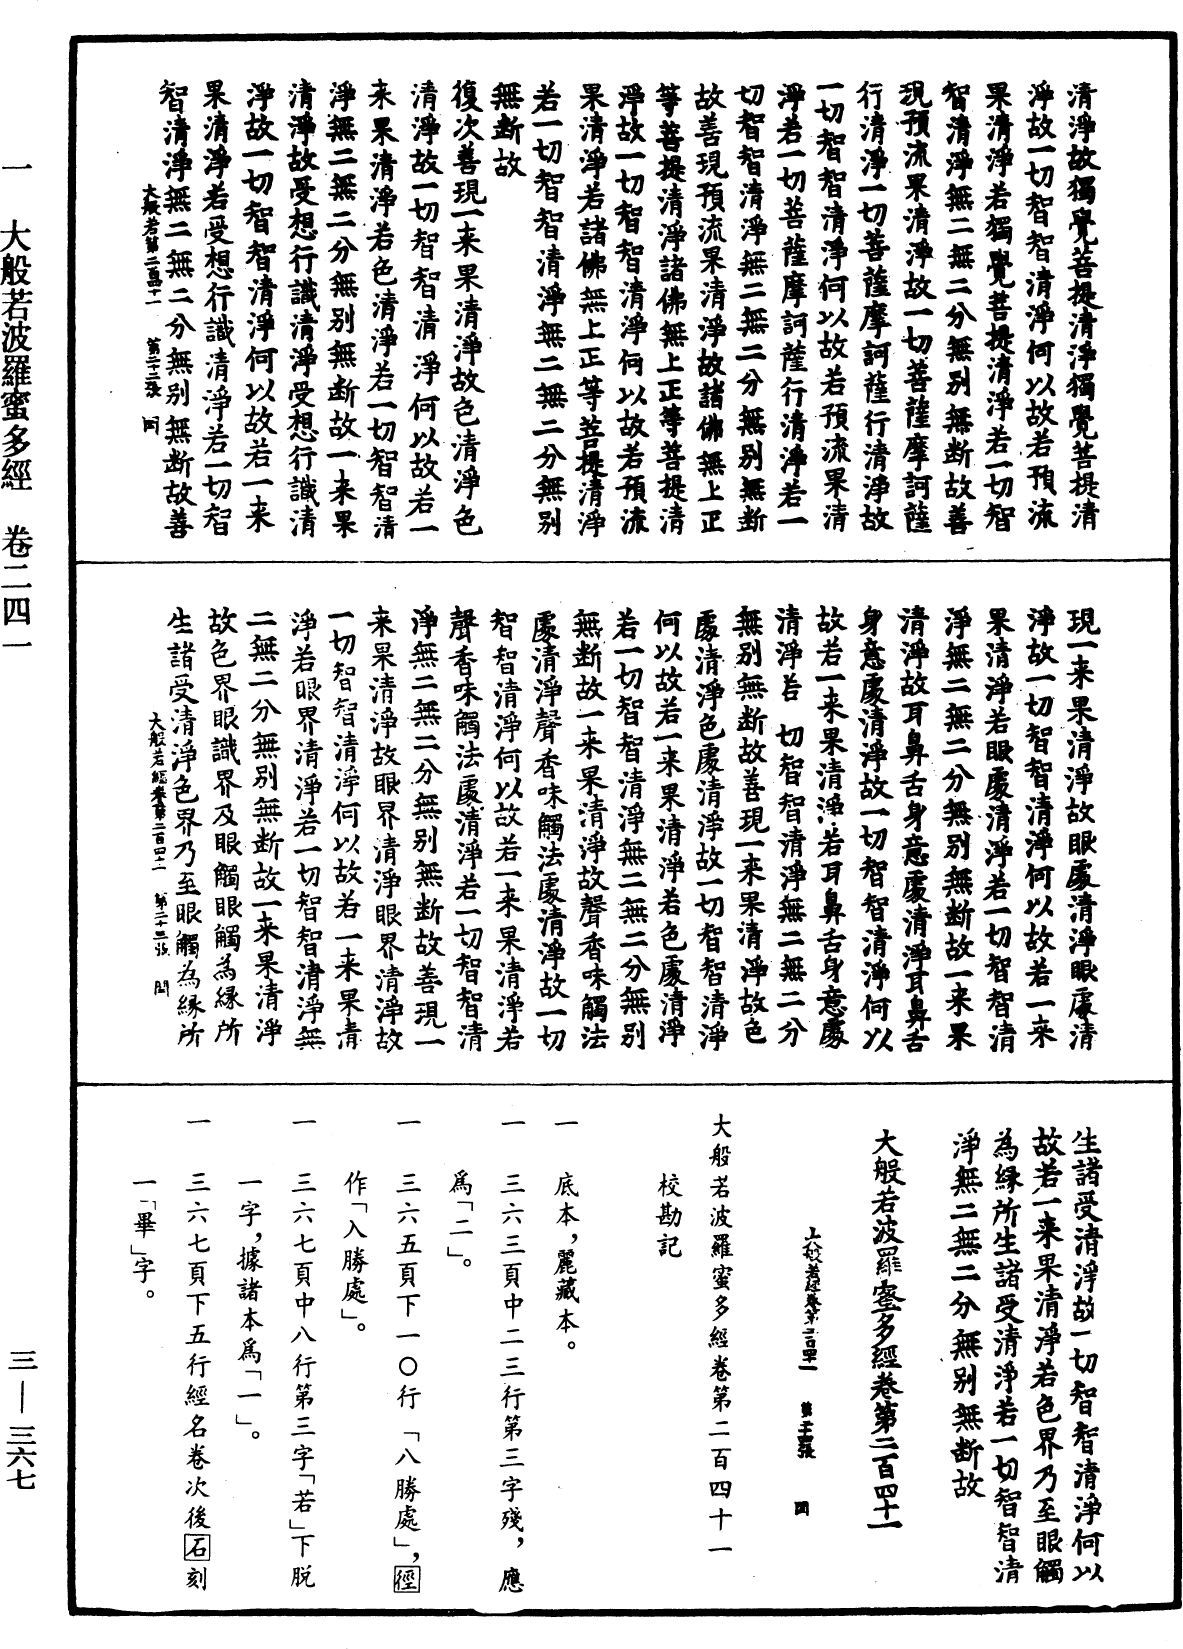 清淨故獨覺菩提清淨獨覺菩提清
淨故一切智智清淨何以故若預流
果清淨若獨覺菩提清淨若一切智
智清淨無二無二分無別無斷故善
現預流果清淨故一切菩薩摩訶薩
行清淨一切菩薩摩訶薩行清淨故
一切智智清淨何以故若預流果清
淨若一切菩薩摩訶薩行清淨若一
切智智清淨無二無二分無別無斷
故善現預流果清淨故諸佛無上正
等菩提清淨諸佛無上正等菩提清
淨故一切智智清淨何以故若預流
果清淨若諸佛無上正等菩提清淨
若一切智智清淨無二無二分無別
無斷故
復次善現一来果清淨故色清淨色
清淨故一切智智清淨何以故若一
来果清淨若色清淨若一切智智清
淨無二無二分無別無斷故一来果
清淨故受想行識清淨受想行識清
淨故一切智智清淨何以故若一来
果清淨若受想行識清淨若一切智
智清淨無二無二分無別無斷故善
大般若第二百四十一 第二十二張
現一来果清淨故眼處清淨眼處清
淨故一切智智清淨何以故若一来
果清淨若眼處清淨若一切智智清
淨無二無二分無別無斷故一来果
清淨故耳鼻舌身意處清淨耳鼻舌
身意處清淨故一切智智清淨何以
故若一来果清淨若耳鼻舌身意處
清淨若 切智智清淨無二無二分
無別無斷故善現一来果清淨故色
處清淨色處清淨故一切智智清淨
何以故若一来果清淨若色處清淨
若一切智智清淨無二無二分無別
無斷故一来果清淨故聲香味觸法
處清淨聲香味觸法處清淨故一切
智智清淨何以故若一来果清淨若
聲香味觸法處清淨若一切智智清
淨無二無二分無別無斷故善現一
来果清淨故眼界清淨眼界清淨故
一切智智清淨何以故若一来果清
淨若眼界清淨若一切智智清淨無
二無二分無別無斷故一来果清淨
故色界眼識界及眼觸眼觸為緣所
生諸受清淨色界乃至眼觸為緣所
大般若經卷第二百四十一 第二十三張
生諸受清淨故一切智智清淨何以
故若一来果清淨若色界乃至眼觸
為緣所生諸受清淨若一切智智清
淨無二無二分無別無斷故
大般若波羅蜜多經卷第二百四十一
大般若波羅蜜多經卷第二百四十一
校勘記
一 底本，麗藏本。
一 三六三頁中二三行第三字殘，應
爲「二」。
一 三六五頁下一〇行「八勝處」，徑
作「入勝處」。
一 三六七頁中八行第三字「若」下脫
一字，據諸本爲「一」。
一 三六七頁下五行經名卷次後石刻
一「畢」字。
一 大般若波羅蜜多經 卷二四一
三—三六七